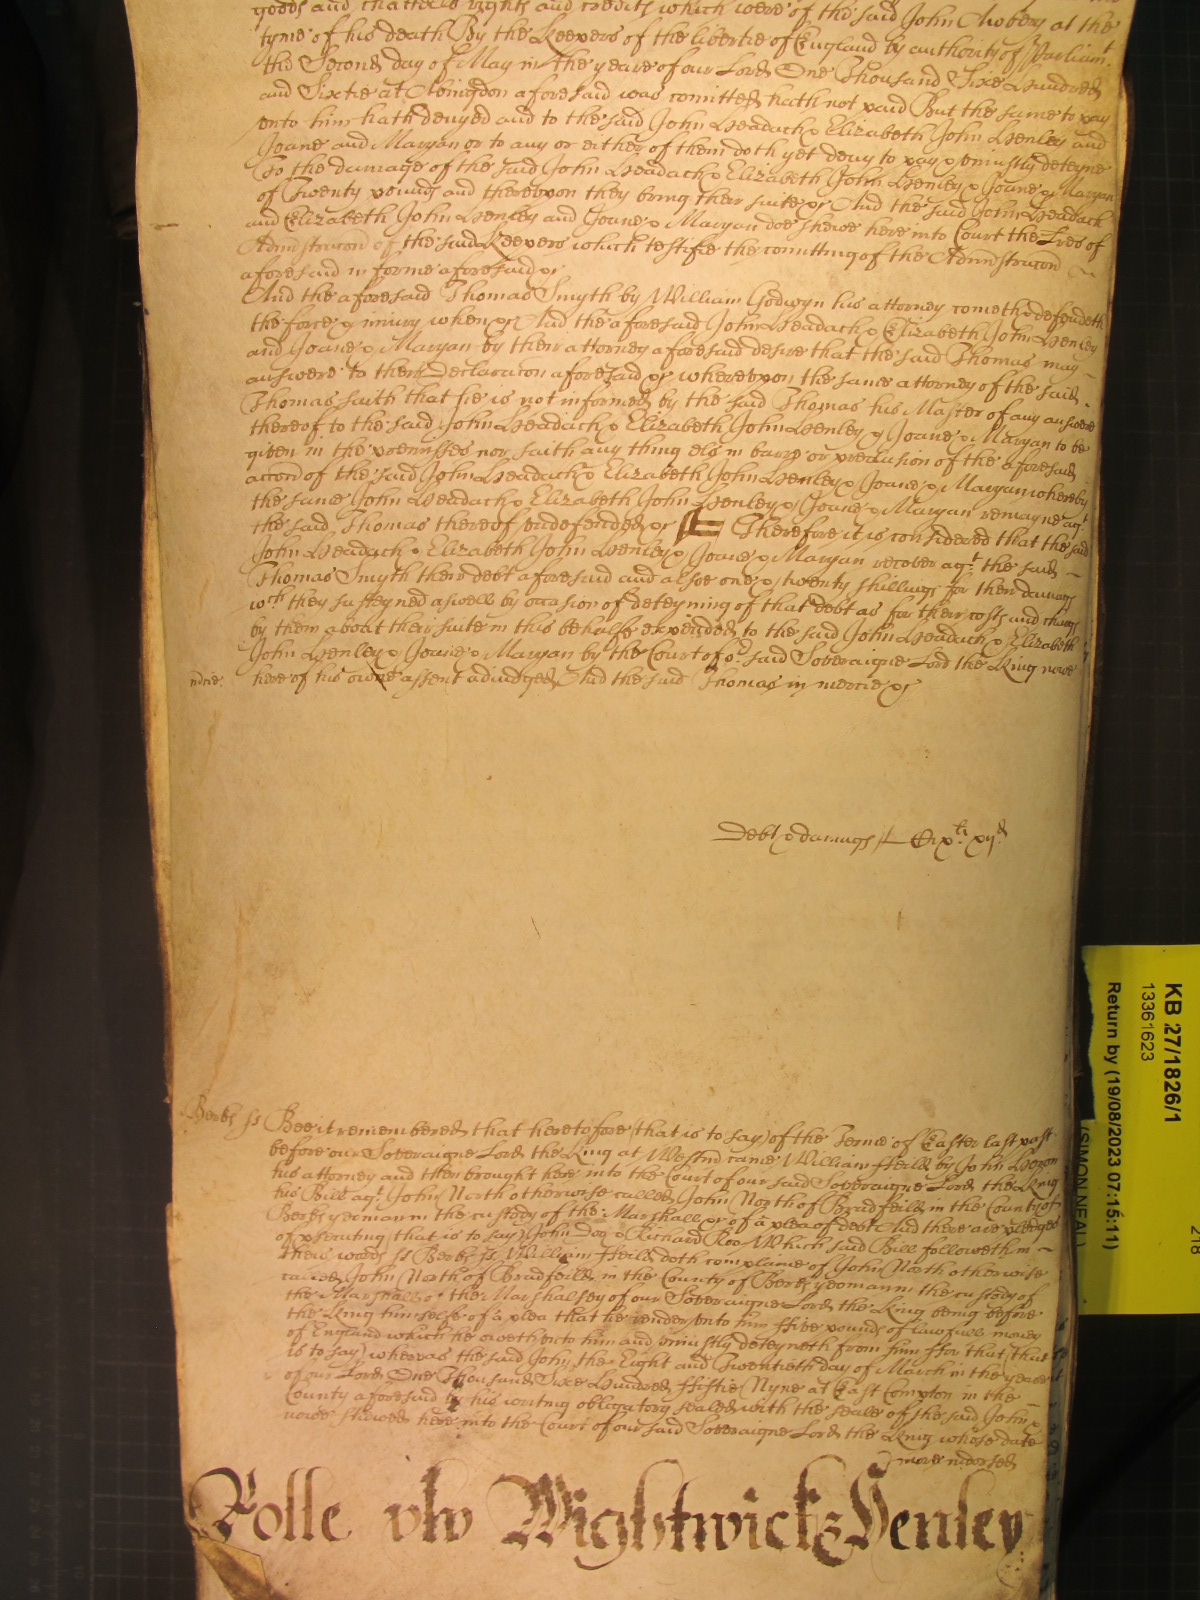 goods and chattells rights and credits which were of the said John Awbery at the
tyme of his death By the Keepers of the libertie of England by authority of Parliamt
the Second day of May in the yeare of our Lord One Thousand Sixe Hundred
and Sixtie at Abingdon aforesaid was comitted hath not paid But the same to pay
unto him hath denyed and to the said John Headach & Elizabeth John Henley and
Joane and Maryan or to any or either of them doth yet deny to pay & uniustly deteyne
To the damage of the said John Headach & Elizabeth John Henley & Joane & Maryan
of Twenty pounds and thereupon they bring their suite &c And the said John Headach
and Elizabeth John Henley and Joane & Maryan doe shewe here into Court the Lres of
Administracon of the said Keepers which testifie the comitting of the Administracon
aforesaid in forme aforesaid &c
And the aforesaid Thomas Smyth by William Godwyn his attorney cometh & defendeth
the force & iniury when &c And the aforesaid John Headach & Elizabeth John Henley
and Joane & Maryan by their attorney aforesaid desire that the said Thomas may
answere to their Declaracon aforesaid &c whereupon the same attorney of the said
Thomas saith that he is not informed by the said Thomas his Master of any answere
thereof to the said John Headach & Elizabeth John Henley & Joane & Maryan to be
given in the premisses nor saith any thing els in barr or preclusion of the aforesaid
accon of the said John Headach & Elizabeth John Henley & Joane & Maryan whereby
the same John Headach & Elizabeth John Henley & Joane & Maryan remayne agt
the said Thomas thereof undefended &c Therefore it is considered that the said
John Headach & Elizabeth John Henley & Joane & Maryan recover agt the said
Thomas Smyth their debt aforesaid and alsoe one & twenty shillings for their damags
wch they susteyned aswell by occasion of deteyning of that debt as for their costs and chargs
by them about their suite in this behalfe expended to the said John Headach & Elizabeth
John Henley & Joane & Maryan by the Court of or said Soveraigne Lord the King nowe
mcie. here of his owne assent adiudged And the said Thomas in mercie &c
Debt & damags
Berks ss Bee it remembered that heretofore (that is to say) of the Terme of Easter last past
before our Soveraigne Lord the King at Westm came William Feild by John
his attorney and then brought here into the Court of our said Soveraigne Lord the King
his Bill agt John North otherwise called John North of Bradfeild in the County of
Berks yeoman in the custody of the Marshall &c of a plea of debt And there are pledges
of prosecuting (that is to say) John Doo & Richard Roo Which said Bill followeth in
theis words ss Berks ss William Feild doth complaine of John North otherwise
called John North of Bradfeild in the County of Berks yeoman in the custody of
the Marshall of the Marshalsey of our Soveraigne Lord the King being before
the King himselfe of a plea that he render unto him ffive pounds of lawfull money
of England which he oweth unto him and uniustly deteyneth from him ffor that (that
is to say) whereas the said John the Eight and Twentieth day of March in the yeare
of our Lord One Thousand Sixe Hundred ffiftie Nyne at East Compton in the
County aforesaid by his writing obligatory sealed with the seale of the said John &
nowe shewed here into the Court of our said Soveraigne Lord the King whose date
more indorsed
Rolle Wightwick & Henley
KB 27/1826/1
13361623
Return by (19/08/2023 07:15:11)
(SIMON NEAL)
218